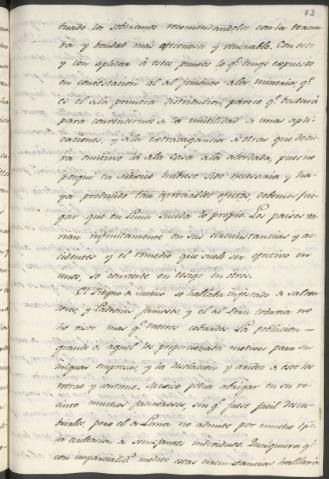 73
tuado los soberanos recomendandolos con la terneza
y bondad mas afectuosa y venerable. Con esto
y con aplicar à este punto lo qᵉ tengo expuesto
en contestacion al del fomento de la mineria qᵉ
es el de la primera distribucion, parece qᵉ bastará
para convencernos de la inutilidad de unas apli-
caciones, y de la extravagancia de otras que debe-
ra omitirse la de la Casa de la Acordada, pues no
porque en Mexico hubiese sido necesaria y ha-
ya producido tan apreciables efectos, debemos juz-
gar que en Lima suceda lo propio. Los paises va-
rian infinitamente en sus circunstancias y ac-
cidentes y el remedio que suele ser efectivo en
unos, se convierte en tosigo en otros.
El Reyno de Mexico se hallaba infestado de saltea-
dores, y Ladrones famosos, y el del Peru todavia no
ha visto mas qᵉ rateros cobardes. La poblacion
grande de aquel les proporcionaba motivos para sus
iniquas empresas, y la desolacion y aridez de este los
retrae y contiene. Mexico podia abrigar en su re-
cinto muchos facinerosos, sin qᵉ fuese facil descu-
brirlos, pero el de Lima no admite por mucho tpo
la ocultacion de semejantes individuos. Qualquiera qᵉ
con imparcialidᵈ medite estas circunstancias hallará